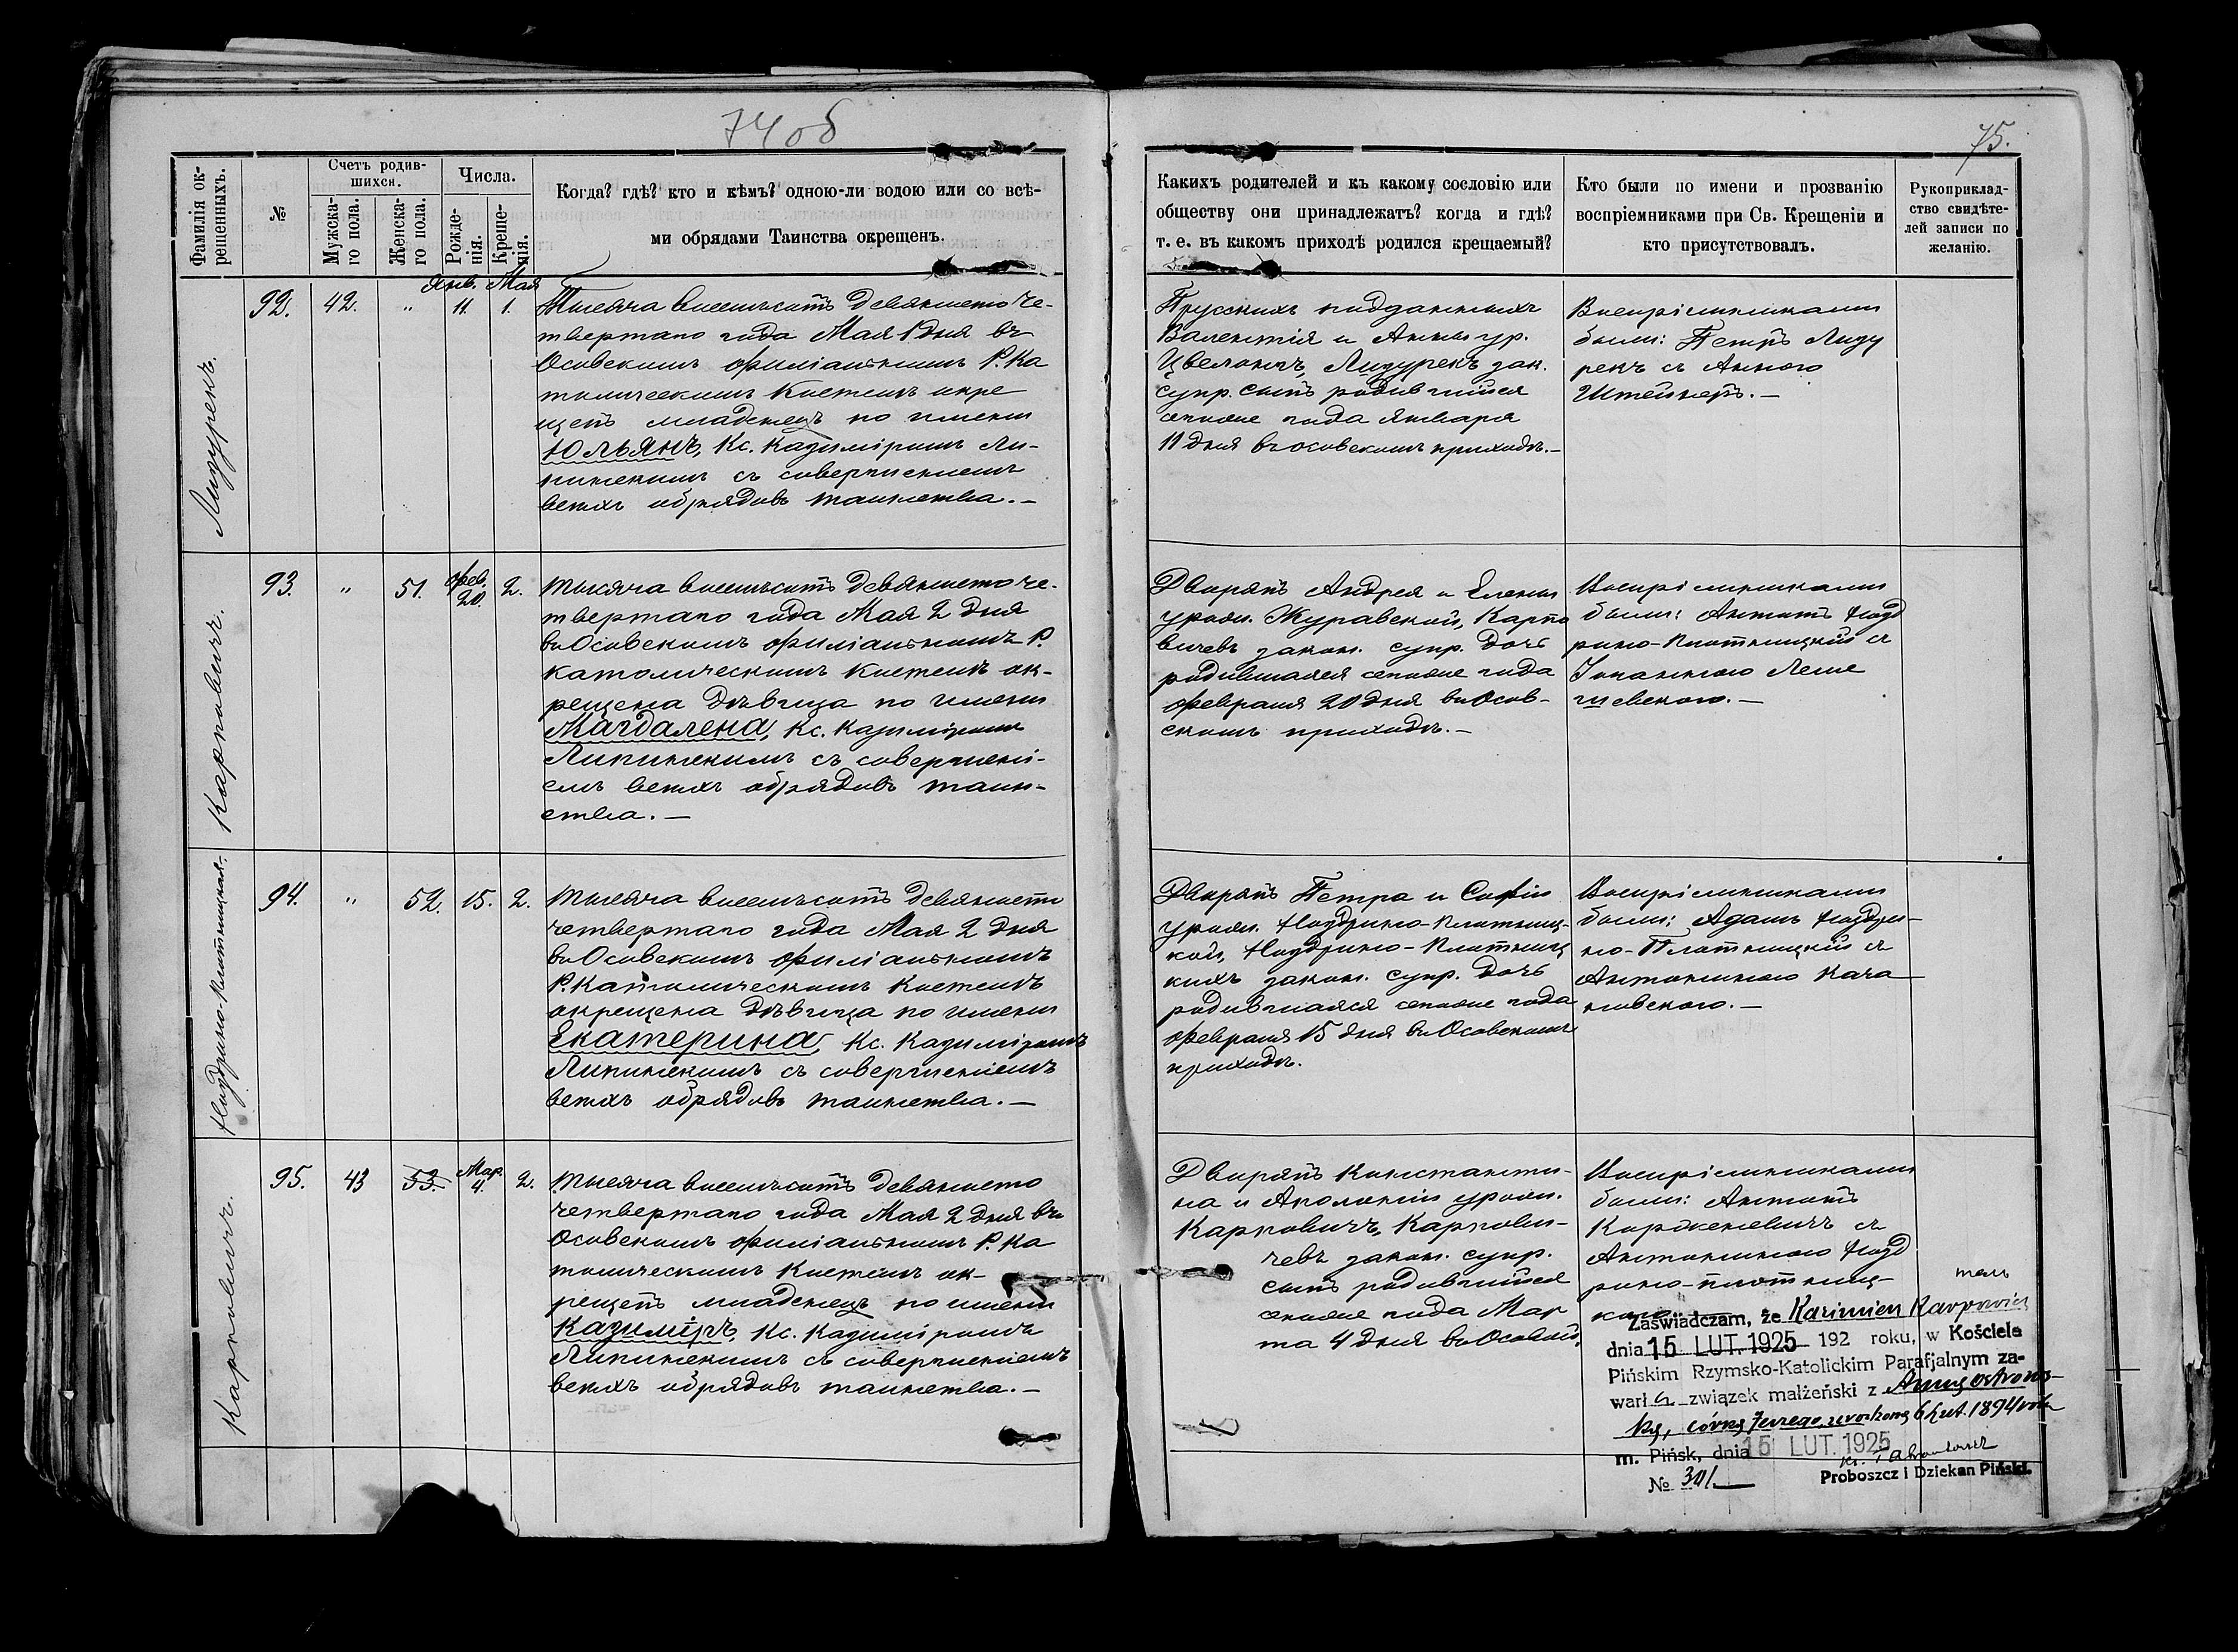 74 об
75.
Фамилія ок-
рещенныхъ.
№
Счетъ родив-
шихся.
Мужска-
го пола.
Женска-
го пола.
Числа.
Рожде-
нія.
Креще-
нія.
Когда? гдѣ? кто и кѣмъ? одною-ли водою или со всѣ-
ми обрядами Таинства окрещенъ.
Какихъ родителей и къ какому сословію или
обществу они принадлежатъ? когда и гдѣ?
т. е. въ какомъ приходѣ родился крещаемый?
Кто были по имени и прозванію
воспріемниками при Св. Крещеніи и
кто присутствовалъ.
Рукоприклад-
ство свидѣте-
лей записи по
желанію.
Лизурекъ.
92.
42.
"
Янв.
11.
Мая
1.
Тысяча восемьсотъ девяносто че-
твертаго года Мая 1 дня въ
Осовскомъ филіальномъ Р. Ка
толическомъ Костелѣ окре
щенъ младенецъ по имени
Юльянъ, Кс. Казиміромъ Ли-
пинскимъ съ совершеніемъ
всѣхъ обрядовъ таинства. —
Прусскихъ подданныхъ
Валентія и Анны ур.
Лизурекъ зак.
супр. сынъ родившійся
сегоже года Января
11 дня въ Осовскомъ приходѣ. —
Воспріемниками
были: Петръ Лизу
рекъ съ Анною
Штейнертъ. —
Карповичъ.
93.
"
51.
Фев.
20.
2.
Тысяча восемьсотъ девяносто че-
твертаго года Мая 2 дня
въ Осовскомъ филіальномъ Р.
Католическомъ Костелѣ ок-
рещена дѣвица по имени
Магдалена, Кс. Казиміромъ
Липинскимъ съ совершені-
емъ всѣхъ обрядовъ таин-
ства. —
Дворянъ Андрея и Елены
урожд. Журавской, Карпо
вичевъ закон. супр. дочь
родившаяся сегоже года
Февраля 20 дня въ Осов-
скомъ приходѣ. —
Воспріемниками
были: Антонъ Нозд
рино-Плотницкій съ
Іоанною Леше
гиевскою. —
Ноздрино-Плотницкая.
94.
"
52.
15.
2.
Тысяча восемьсотъ девяносто
четвертаго года Мая 2 дня
въ Осовскомъ филіальномъ
Р. Католическомъ Костелѣ
окрещена дѣвица по имени
Екатерина, Кс. Казиміромъ
Липинскимъ съ совершеніемъ
всѣхъ обрядовъ таинства. —
Дворянъ Петра и Софіи
урожд. Ноздрино-Плотниц-
кой, Ноздрино-Плотниц
кихъ закон. супр. дочь
родившаяся сегоже года
Февраля 15 дня въ Осовскомъ
приходѣ.
Воспріемниками
были: Адамъ Ноздри-
но-Плотницкій съ
Антониною Кача
новскою. —
Карповичъ.
95.
43
53.
Мар.
4.
2.
Тысяча восемьсотъ девяносто
четвертаго года Мая 2 дня въ
Осовскомъ филіальномъ Р. Ка
толическомъ Костелѣ ок-
рещенъ младенецъ по имени
Казиміръ, Кс. Казиміромъ
Липинскимъ съ совершеніемъ
всѣхъ обрядовъ таинства. —
Дворянъ Константи-
на и Аполоніи урожд.
Карповичъ, Карпови-
чевъ закон. супр.
сынъ родившійся
сегоже года Мар
та 4 дня въ Осовой.
Воспріемниками
были: Антонъ
Корженевичъ съ
Антониною Нозд
рино-плотниц-
кою.
Zaświadczam, że Kazimierz Karpowicz
dnia 15 LUT. 1925 192 roku, w Kościele
Pińskim Rzymsko-Katolickim Parafjalnym za-
warł związek małżeński z Anną Ostrows-
ką, córką Jerzego, urodzoną 6 Lut. 1894 roku
m. Pińsk, dnia 15 LUT. 1925
№ 301
Proboszcz i Dziekan Piński.